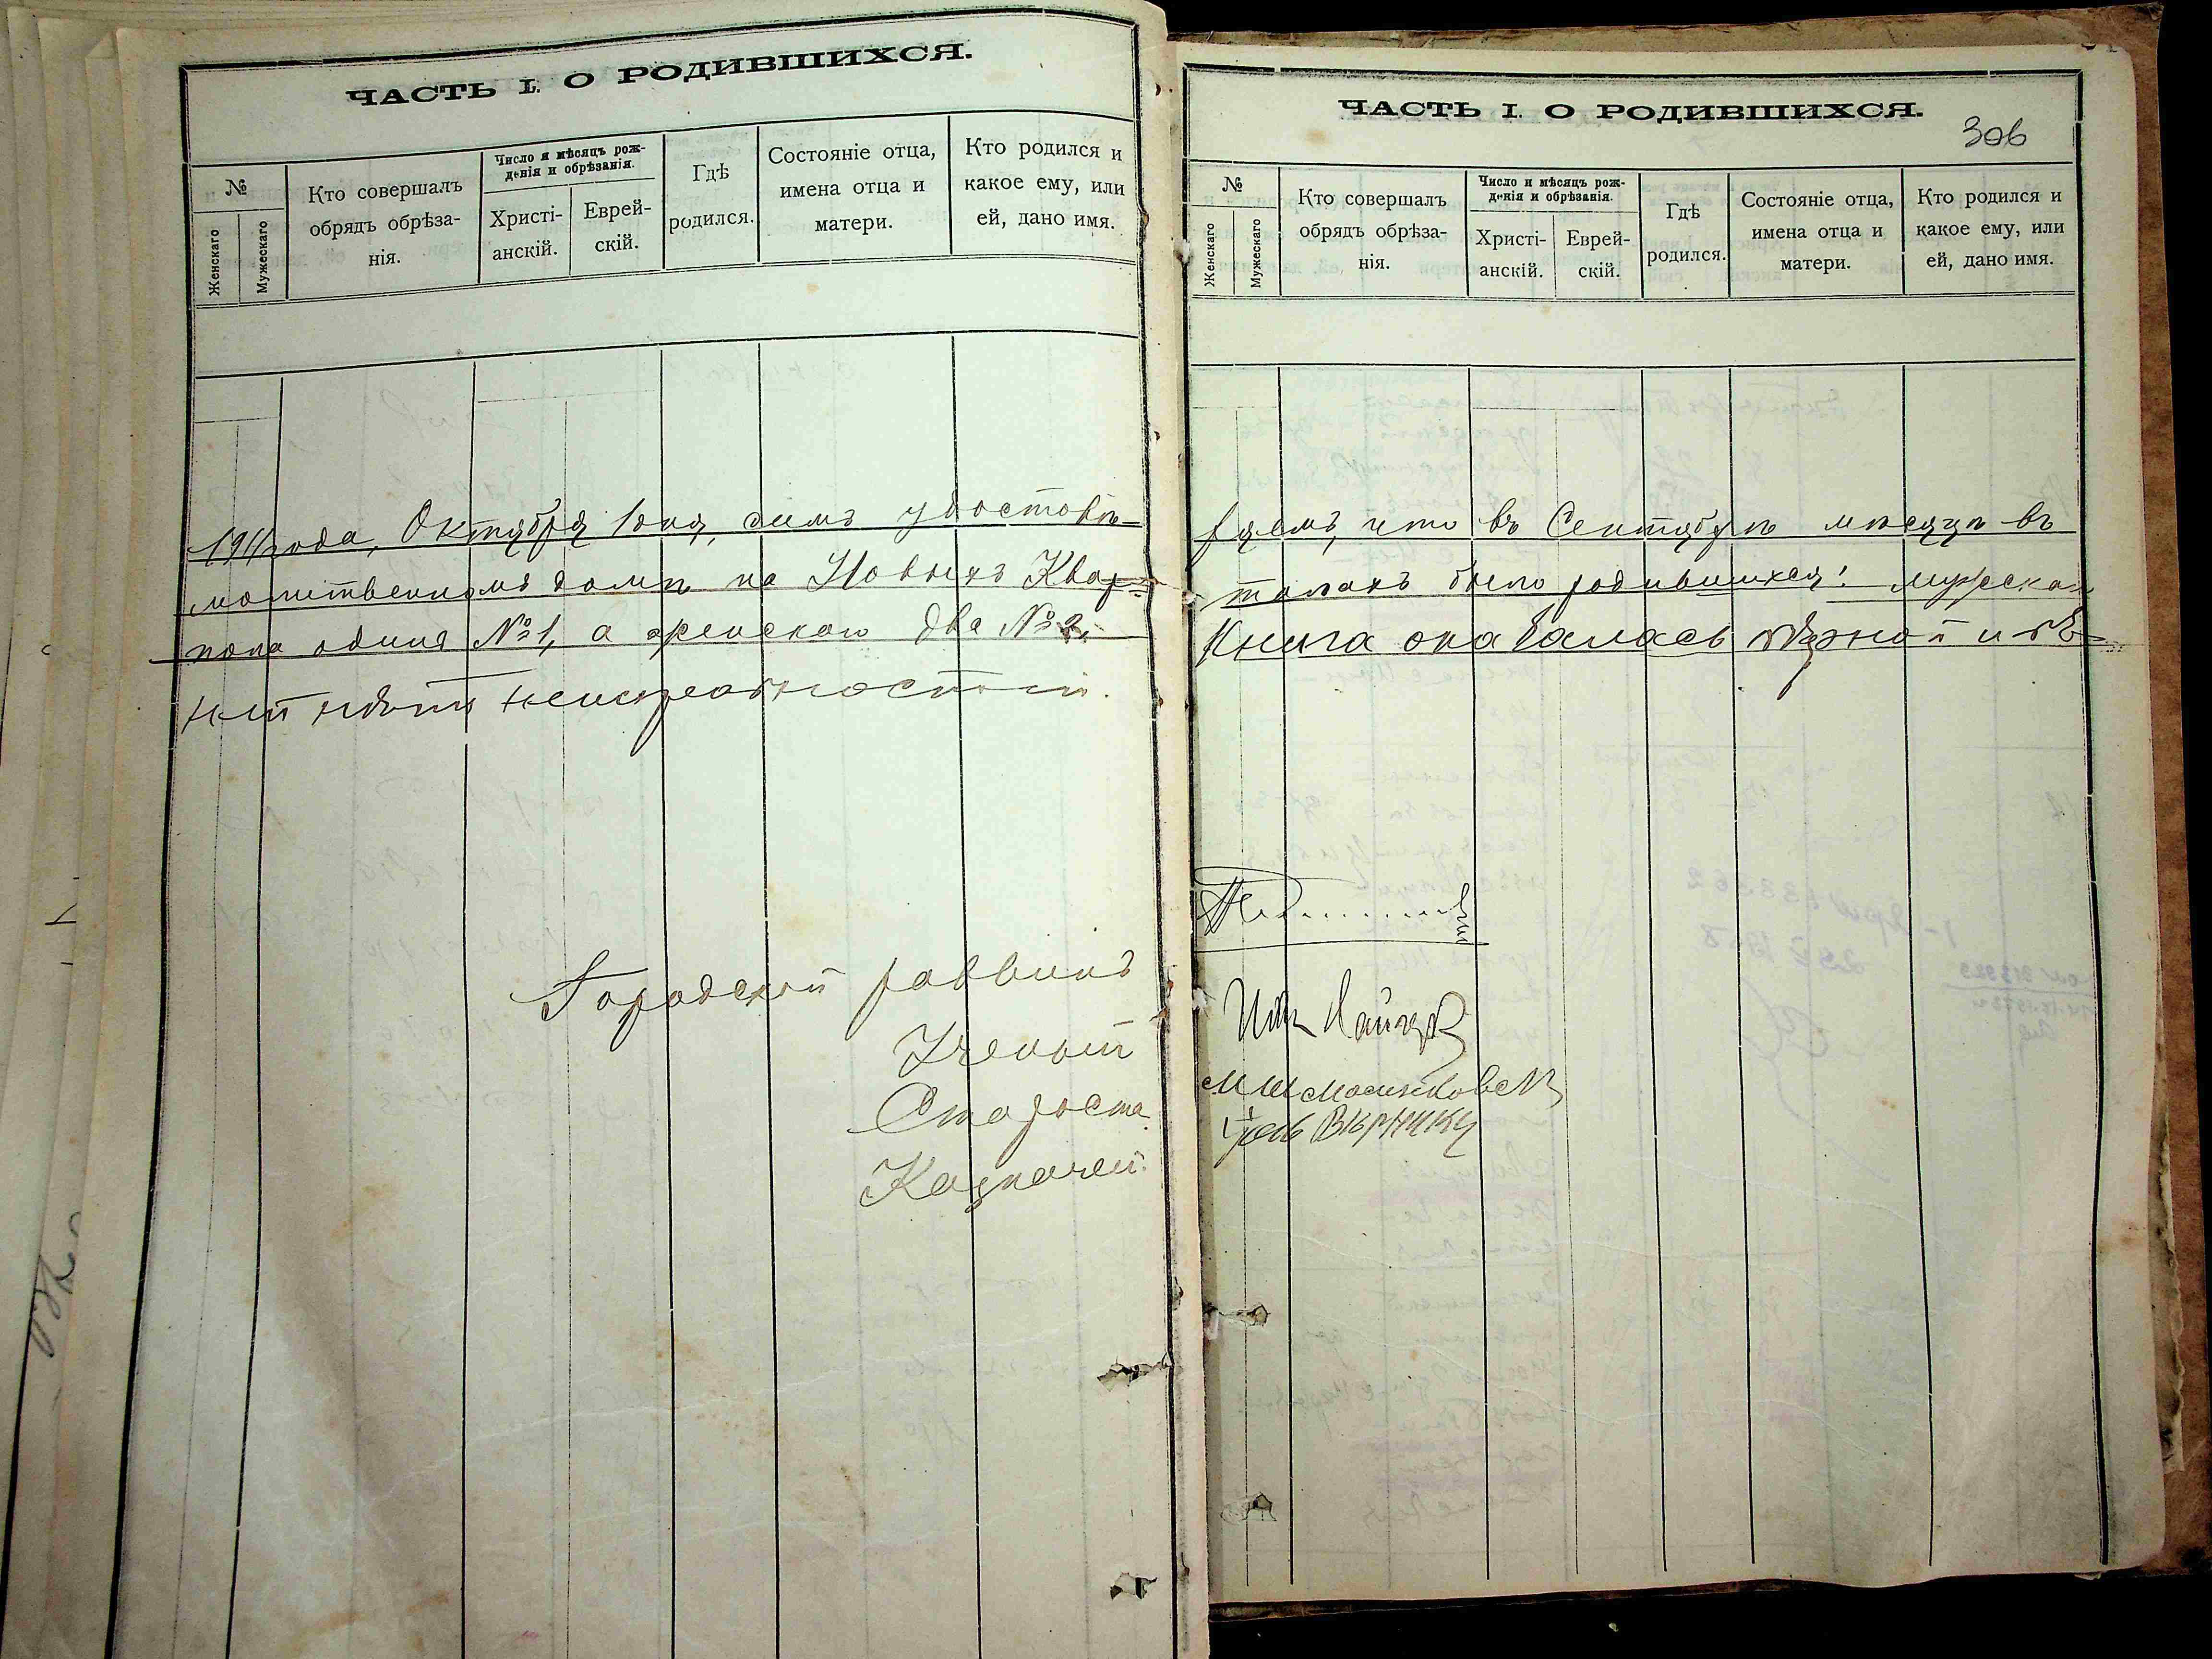 ЧАСТЬ I. О РОДИВШИХСЯ.
№
Женскаго
Мужескаго
Кто совершалъ
обрядъ обрѣза-
нія.
Число и мѣсяцъ рож-
денія и обрѣзанія.
Христі-
анскій.
Еврей-
скій.
Гдѣ
родился.
Состояніе отца,
имена отца и
матери.
Кто родился и
какое ему, или
ей, дано имя.
1911 года, Октября 1 дня, симъ удостовѣ-
молитвенномъ домѣ на Новыхъ Квар-
пола одинъ №1, а женскаго два № 2.
неисправностей.
Городской раввинъ
Ученый
Староста
Казначей
ЧАСТЬ I. О РОДИВШИХСЯ.
306
№
Женскаго
Мужескаго
Кто совершалъ
обрядъ обрѣза-
нія.
Число и мѣсяцъ рож-
денія и обрѣзанія.
Христі-
анскій.
Еврей-
скій.
Гдѣ
родился.
Состояніе отца,
имена отца и
матери.
Кто родился и
какое ему, или
ей, дано имя.
ряемъ, что въ Сентябрѣ мѣсяцѣ въ
талахъ было родившихся: мужскаго
Книга оказалась вѣрной и въ